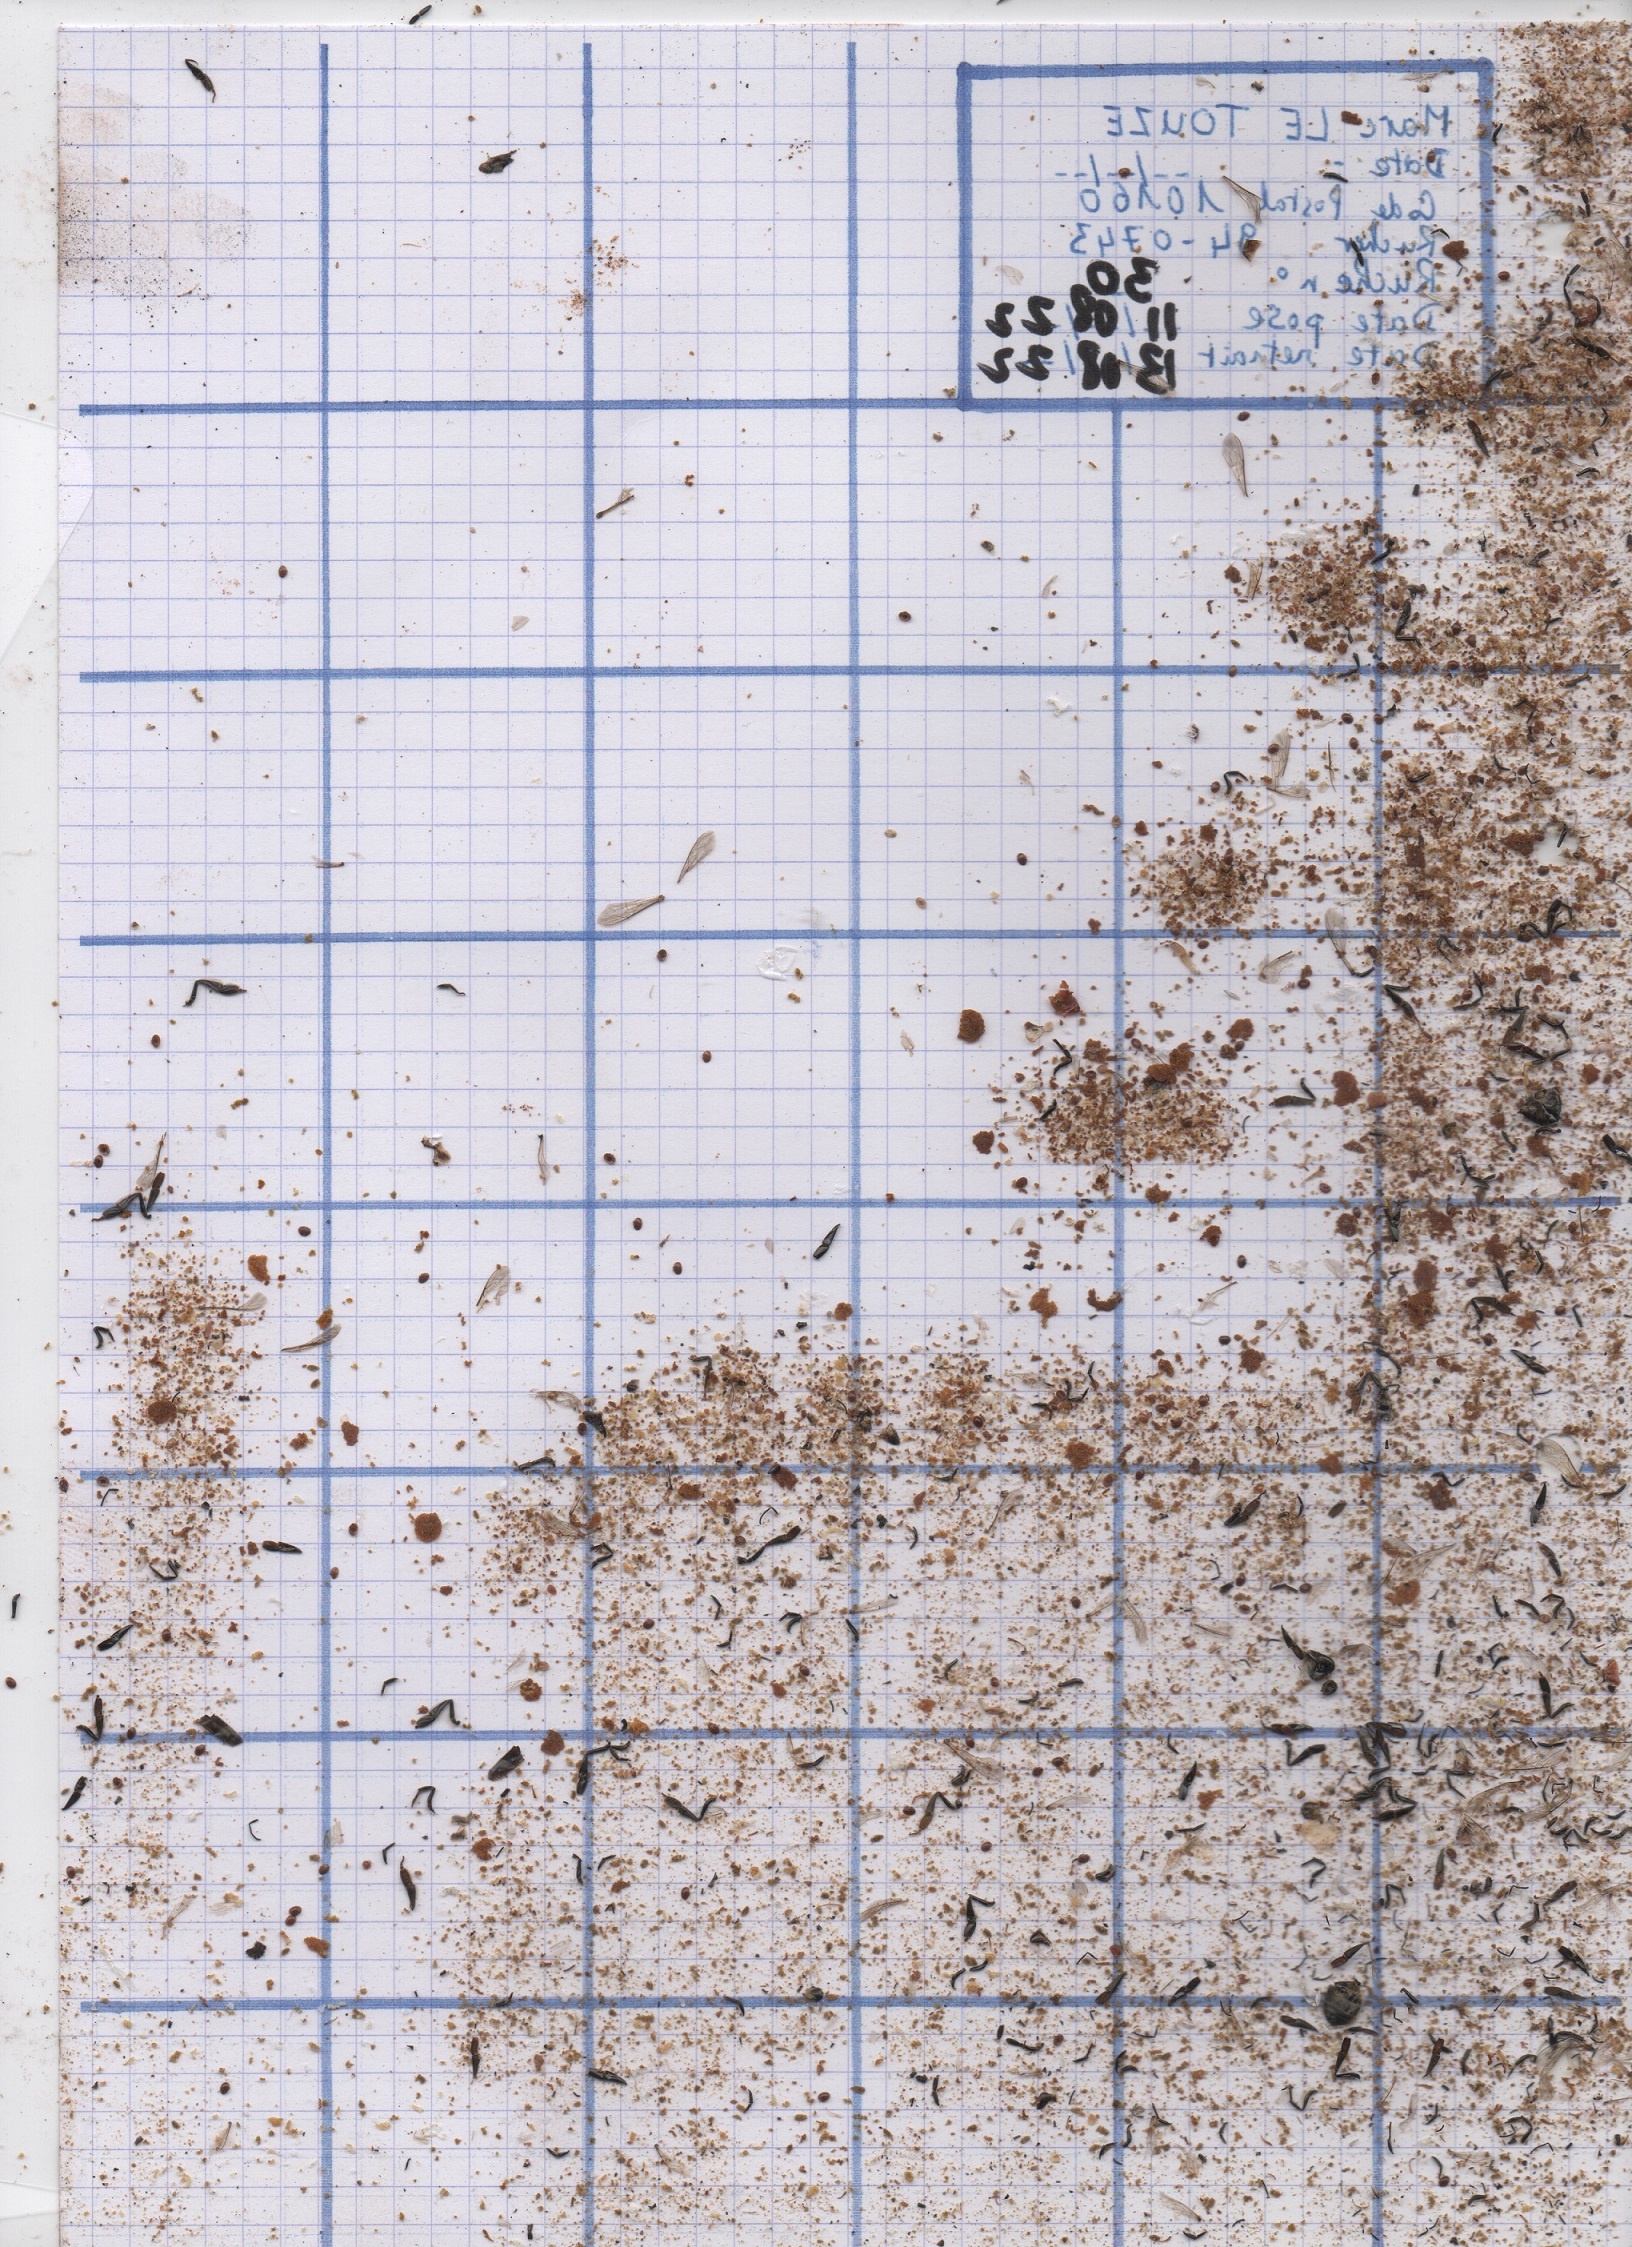 Marc LE TOUZE
Date : --/--/--
Code Postal 10160
Rucher 94-0743
Ruche n° 30
Date pose 11/08/22
Date retrait 13/08/22